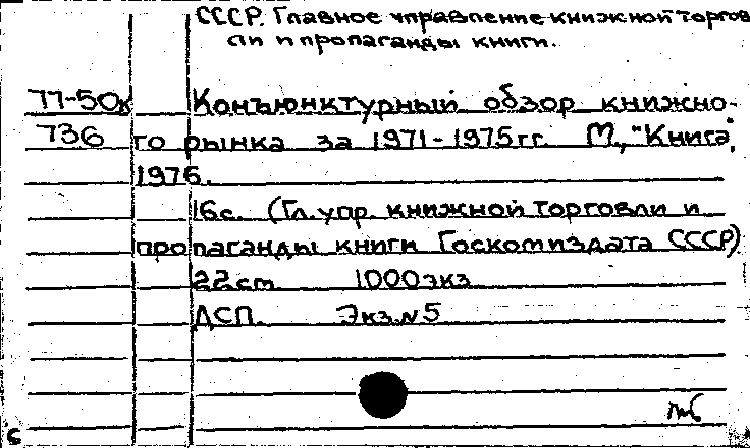 СССР. Главное управление книжной торгов
ли и пропаганды книги.
77-50к Конъюнктурный обзор книжно-
736 го рынка за 1971-1975гг. М., "Книга",
1976.
16с. (Гл. упр. книжной торговли и
пропаганды книги Госкомиздата СССР)
22см 1000экз
ДСП. Экз.№5